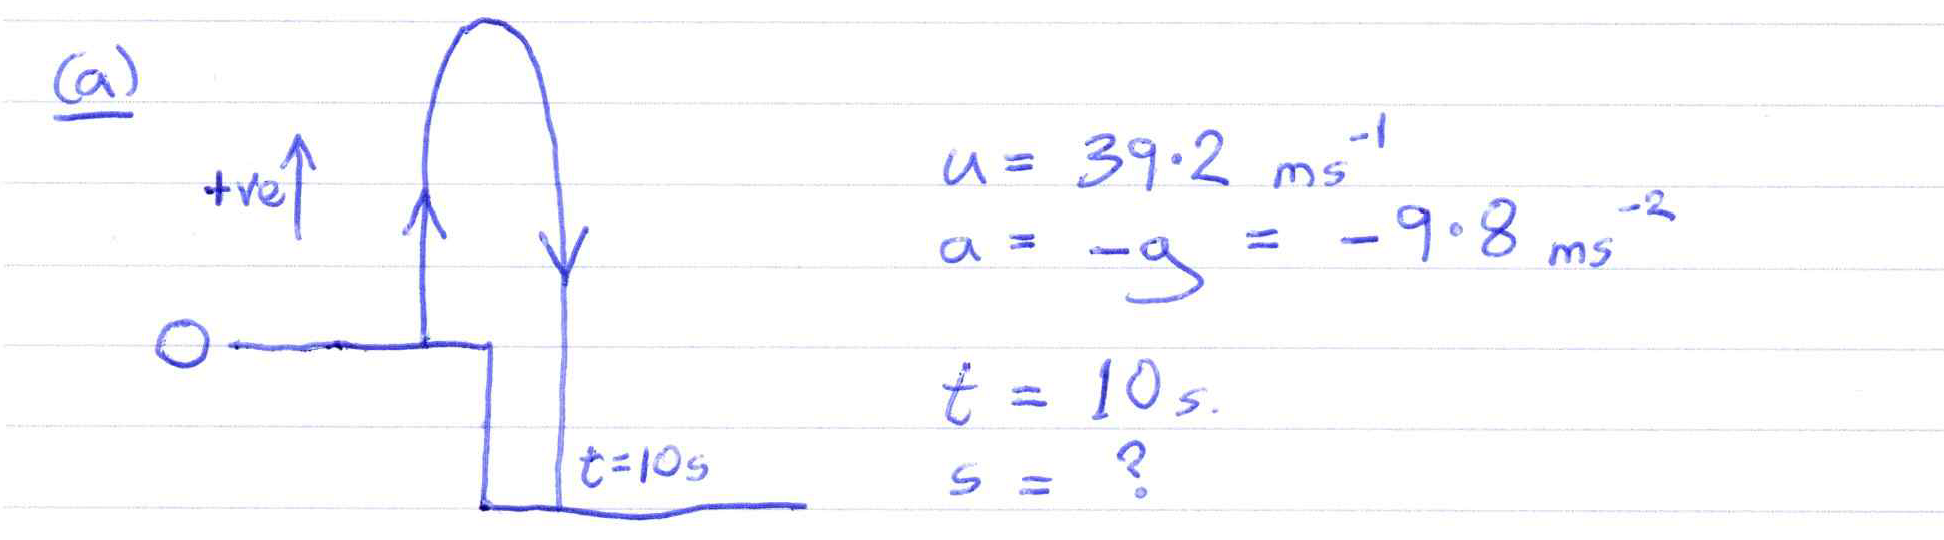 (a)
+ve
O
t=10s
u = 39.2 ms⁻¹
a = -g = -9.8 ms⁻²
t = 10s.
s = ?